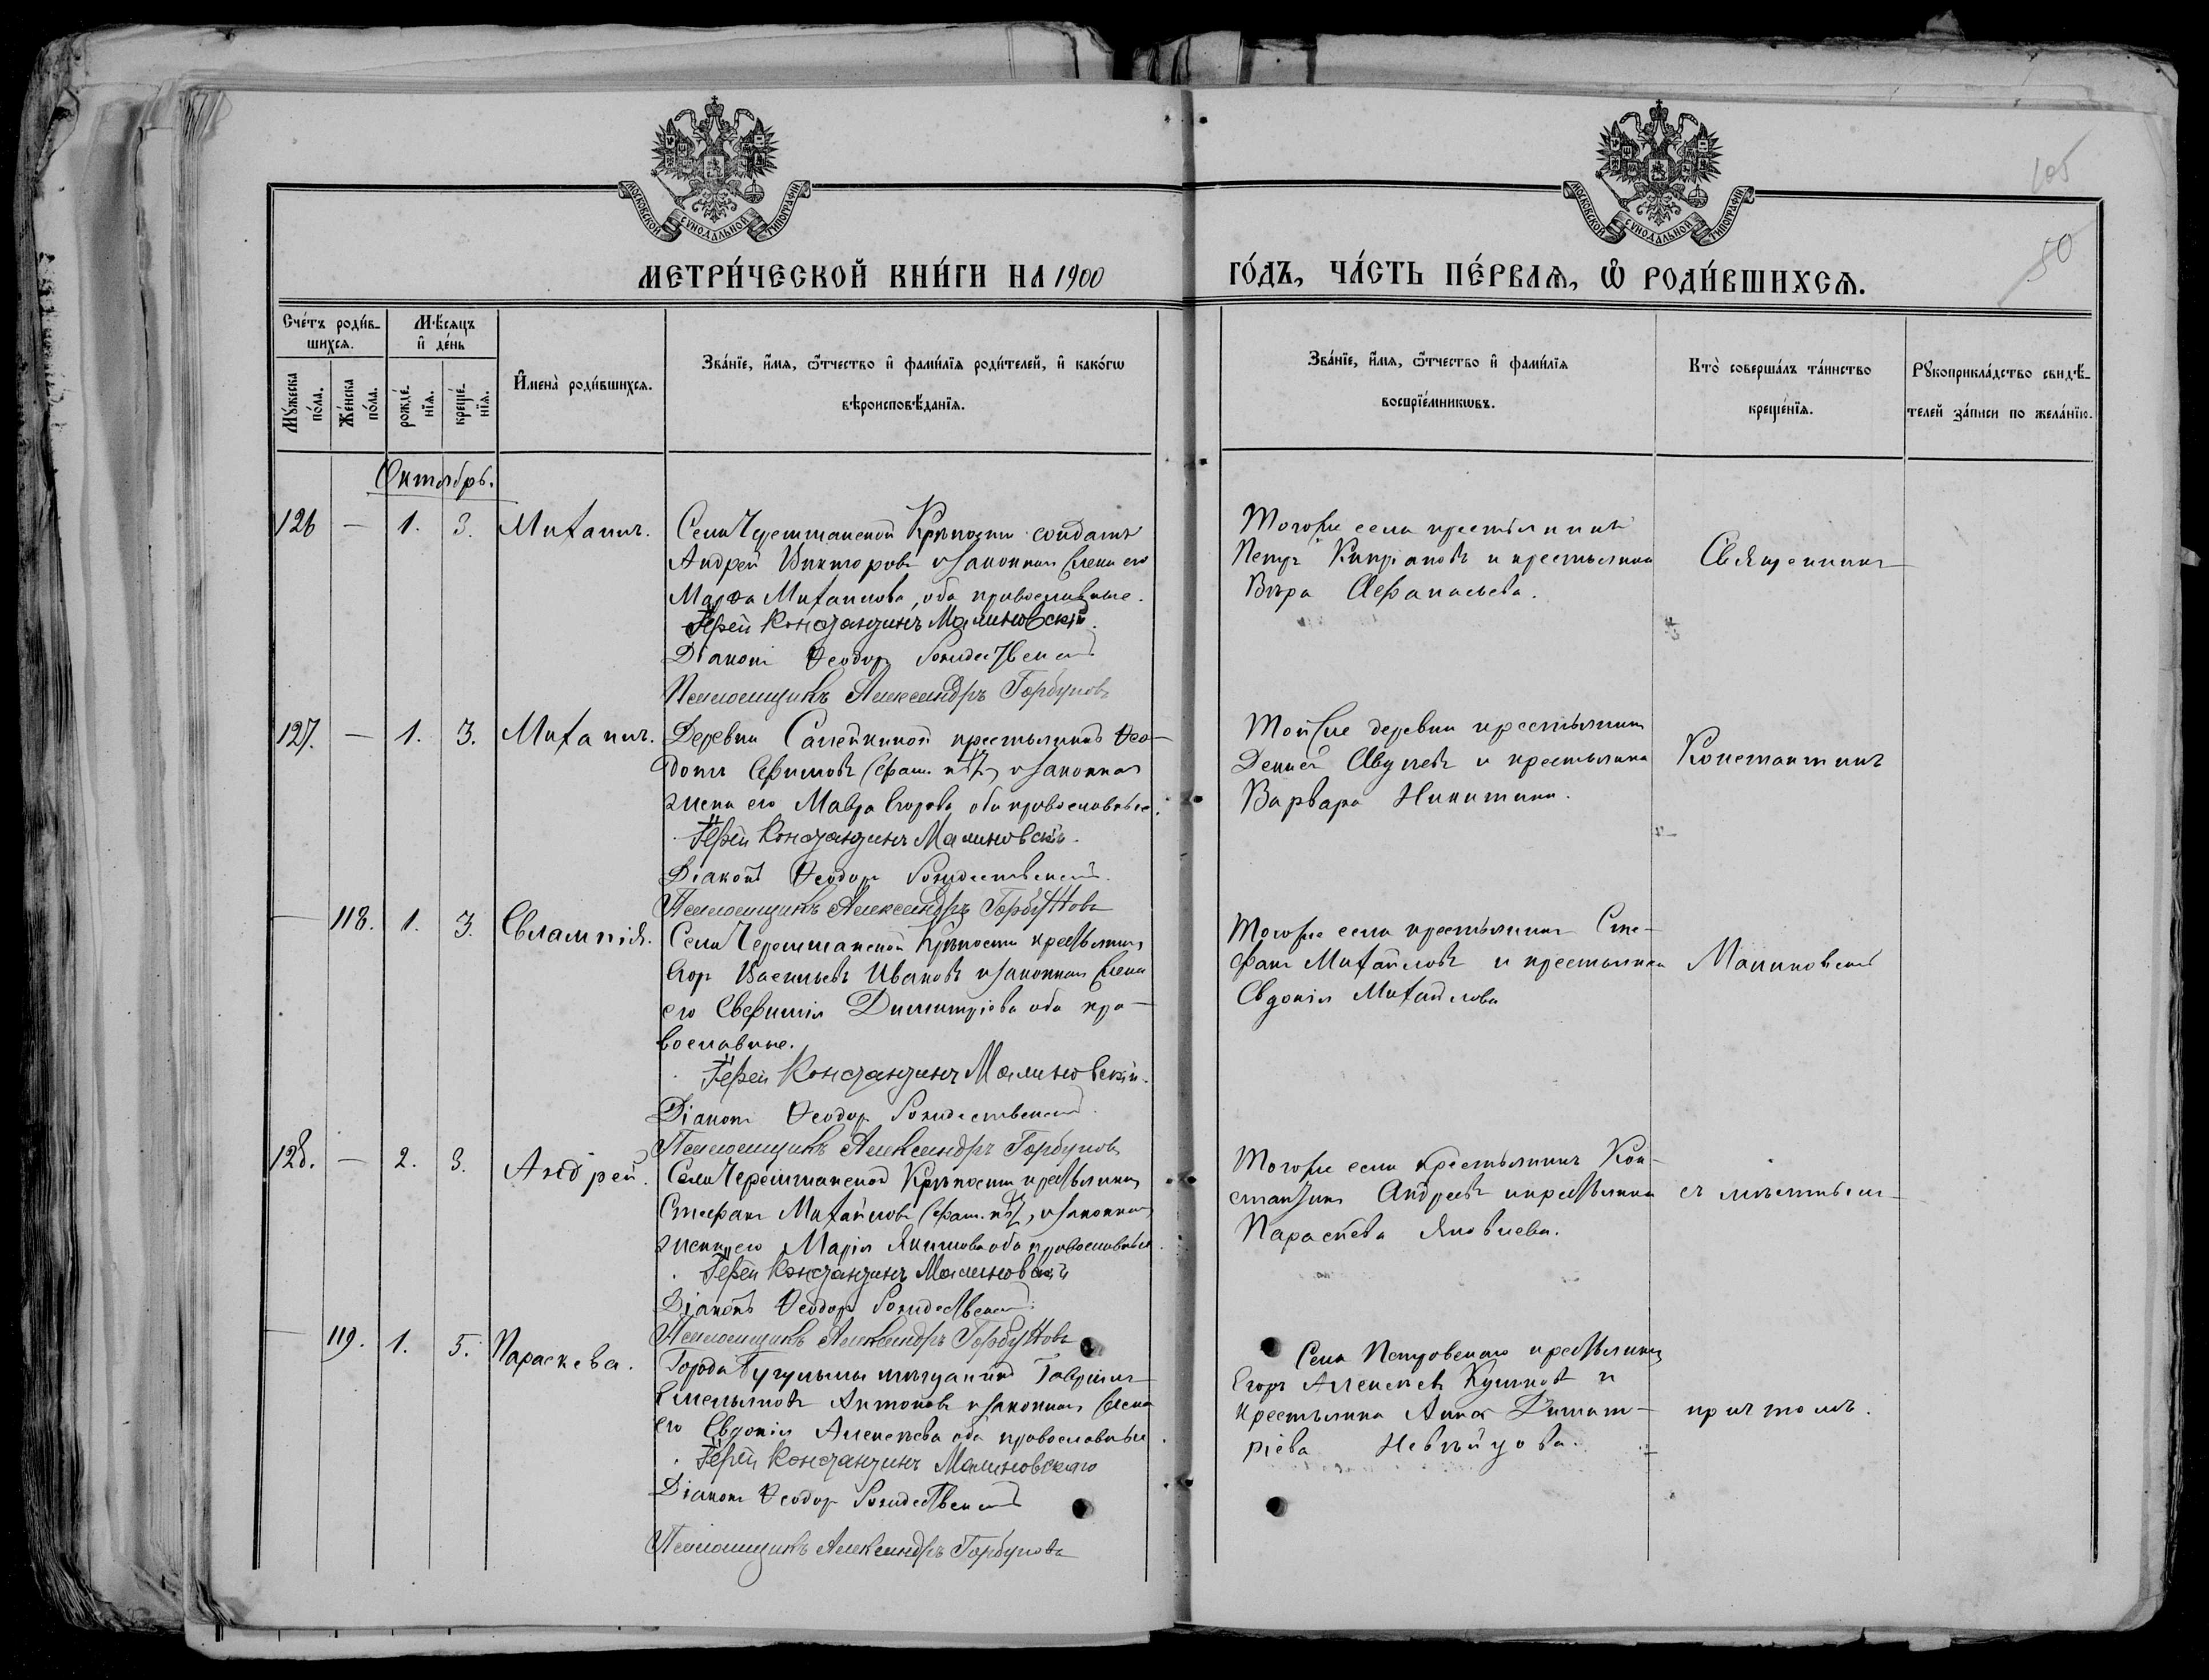 105
50
МОСКОВСКОЙ СѴНОДАЛЬНОЙ ТИПОГРАФІИ
МОСКОВСКОЙ СѴНОДАЛЬНОЙ ТИПОГРАФІИ
МЕТРИ́ЧЕСКОЙ КНИ́ГИ НА 1900
ГО́ДЪ, ЧА́СТЬ ПЕ́РВАѦ, Ѽ РОДИ́ВШИХСѦ.
Сче́тъ роди́в-
шихсѧ.
Мꙋжеска по́ла.
Же́нска по́ла.
Мѣ́сѧцъ
и҆ де́нь
рожде́-
нїѧ.
креще́-
нїѧ.
И҆мена̀ роди́вшихсѧ.
Зва́нїе, и҆́мѧ, ѻ҆́тчество и҆ фами́лїѧ роди́телей, и҆ како́гѡ
вѣроисповѣ́данїѧ.
Зва́нїе, и҆́мѧ, ѻ҆́тчество и҆ фами́лїѧ
воспрїе́мникѡвъ.
Кто̀ соверша́лъ та́инство
креще́нїѧ.
Рꙋкоприкла́дство свидѣ́-
телей за́писи по жела́нїю.
Октябрь.
126 — 1. 3. Михаилъ.
Села Черемшанской Крѣпости солдатъ
Андрей Викторовъ и законная жена его
Марѳа Михаилова, оба православные.
Іерей Константинъ Малиновскій.
Діаконъ Ѳеодоръ Рождественскій
Псаломщикъ Александръ Горбуновъ
Тогоже села крестьянинъ
Петръ Кипріановъ и крестьянка
Вѣра Аѳанасьева.
Священникъ
127. — 1. 3. Михаилъ.
Деревни Салейкиной крестьянинъ Ѳео-
дотъ Ефимовъ (фам. нѣтъ) и законная
жена его Мавра Егорова оба православные.
Іерей Константинъ Малиновскій.
Діаконъ Ѳеодоръ Рождественскій.
Псаломщикъ Александръ Горбуновъ
Тойже деревни крестьянинъ
и крестьянка
Варвара Никитина.
Константинъ
— 118. 1. 3. Евлампія.
Села Черемшанской Крѣпости крестьянинъ
Егоръ Васильевъ Ивановъ и законная жена
его Евфимія Димитріева оба пра-
вославные.
Іерей Константинъ Малиновскій.
Діаконъ Ѳеодоръ Рождественскій
Псаломщикъ Александръ Горбуновъ
Тогоже села крестьянинъ Сте-
фанъ Михайловъ и крестьянка
Евдокія Михайлова
Малиновскій
128. — 2. 3. Андрей.
Села Черемшанской Крѣпости крестьянинъ
Стефанъ Михайловъ (фам. нѣтъ), и законная
жена его Марія Якимова оба православные.
Іерей Константинъ Малиновскій
Діаконъ Ѳеодоръ Рождественскій
Псаломщикъ Александръ Горбуновъ
Тогоже села крестьянинъ Кон-
стантинъ Андреевъ и крестьянка
Параскева Яковлева.
съ мѣстнымъ
— 119. 1. 5. Параскева.
Города Бугульмы мѣщанинъ Гавріилъ
Емельяновъ Антоновъ и законная жена
его Евдокія Алексѣева оба православные.
Іерей Константинъ Малиновскаго
Діаконъ Ѳеодоръ Рождественскій
Псаломщикъ Александръ Горбуновъ
Села Петровскаго крестьянинъ
Егоръ Алексѣевъ и
крестьянка Анна Димит-
ріева
причтомъ.